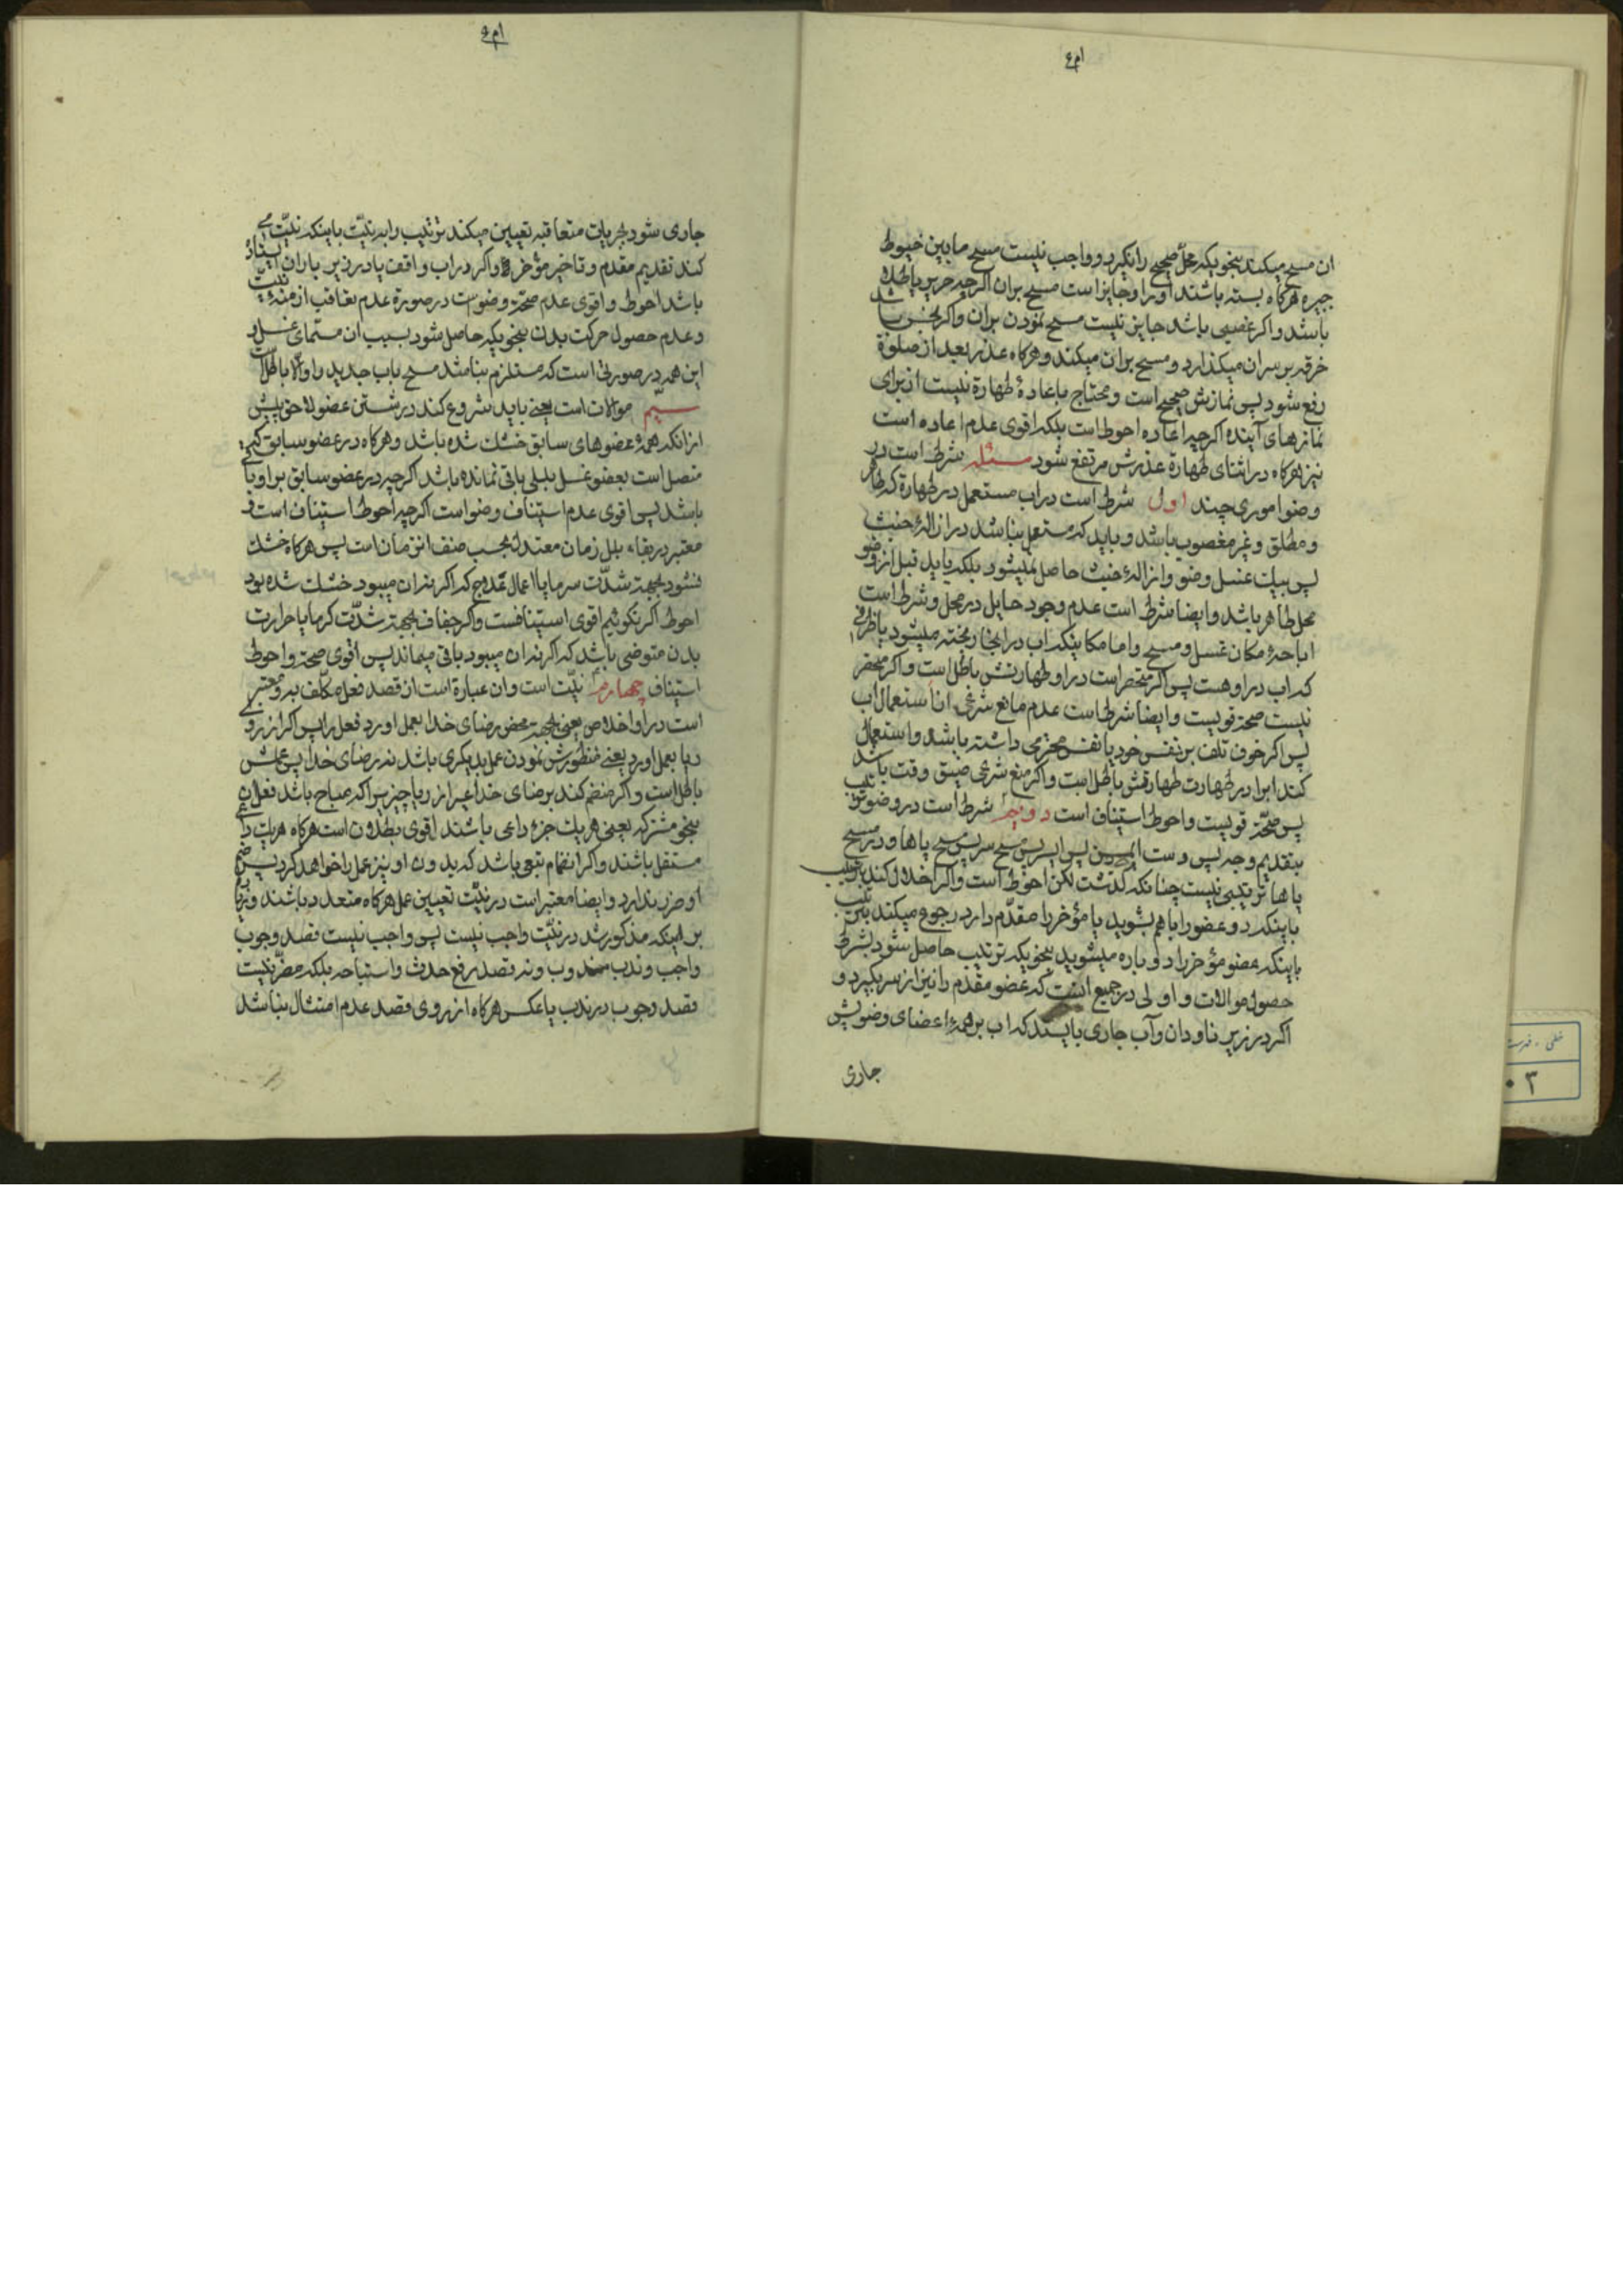 ان مسح میکند بنحویکه محل صحیح را نکیرد و واجب نیست مسح ما بین خیوط
جبیره هرکاه بسته باشند او را و جایز است مسح بران اکرچه حریر یا طلا
باشد و اکر غصبی باشد جایز نیست مسح نمودن بران و اکر نجس باشد
خرقه بر سر ان میکذارد و مسح بران میکند و هرکاه عذر بعد از صلوة
رفع شود پس نمازش صحیح است و محتاج باعادۀ طهارة نیست از برای
نمازهای آینده اکرچه اعاده احوط است بلکه اقوی عدم اعاده است
نیز هرکاه در اثنای طهارة عذرش مرتفع شود مسئله شرط است در
وضو اموری چند اول شرط است در اب مستعمل در طهارة که طاهر
و مطلق و غیر مغصوب باشد و باید که مستعمل نباشد در ازالۀ خبث
پس بیک غسل وضو و ازالۀ خبث حاصل نمیشود بلکه باید قبل از وضو
محل طاهر باشد و ایضا شرط است عدم وجود حایل در محل و شرط است
اباحۀ مکان غسل و مسح و اما مکانیکه اب در انجا ریخته میشود یا ظرفی
که اب در او هست پس اکر منحصر است در او طهارتش باطل است و اکر منحصر
نیست صحة قویست و ایضا شرط است عدم مانع شرعی از استعمال اب
پس اکر خوف تلف بر نفس خود یا نفس محترمی داشته باشد و استعمال
کند ابرا در طهارت طهارتش باطل است و اکر منع شرعی ضیق وقت باشد
پس صحّة قویست و احوط استیناف است دویم شرط است در وضو ترتیب
بتقدیم وجه پس دست پس مسح سر پس مسح پاها و در مسح
پاها ترتیبی نیست چنانکه کذشت لکن احوط است و اکر اخلال کند بترتیب
باینکه دو عضو را باهم بشوید یا مؤخر را مقدّم دارد رجوع میکند بترتیب
باینکه عضو مؤخر را دوباره میشوید بنحویکه ترتیب حاصل شود بشرط
حصول موالات و اولی در جمیع انست که عضو مقدّم را نیز از سر بکیرد و
اکر در زیر ناودان و آب جاری بایستد که اب بر همۀ اعضای وضویش
جاری
جاری شود بجریات متعاقبه تعیین میکند ترتیب را به نیّت باینکه نیّت می
کند تقدیم مقدم و تاخیر مؤخر را و اکر در اب واقف یا در زیر باران ایستاد
باشد احوط و اقوی عدم صحّة وضوست در صورة عدم تعاقب ازمنۀ نیّت
و عدم حصول حرکت بدن بنحویکه حاصل شود بسبب ان مسمّای غسل و
این همه در صورتی است که مستلزم نباشد مسح باب جدید را و الّا باطل است
سیّم موالات است یعنی باید شروع کند در شستن عضو لاحق پیش
از انکه همۀ عضوهای سابق خشک شده باشد و هرکاه در عضو سابق که
متصل است بعضو غسل بللی باقی نمانده باشد اکرچه در عضو سابق بر او باقی
باشد پس اقوی عدم استیناف وضو است اکرچه احوط استیناف است و
معتبر در بقاء بلل زمان معتدل بحسب صنف انزمان است پس هرکاه خشک
نشود بجهة شدّت سرما یا اعمال که اکر نه ان میبود خشک شده بود
احوط اکر نکوئیم اقوی استینافست و اکر جفاف بجهة شدّت کرما یا حرارت
بدن متوضی باشد که اکر نه ان میبود باقی میماند پس اقوی صحة و احوط
استیناف چهارم نیّت است و ان عبارة است از قصد فعل مکلّف به و معتبر
است در او اخلاص یعنی بجهة محض رضای خدا بعمل اورد فعل را پس اکر از روی
ریا بعمل اورد یعنی منظورش نمودن عمل بدیکری باشد نه رضای خدا پس عملش
باطل است و اکر منضم کند برضای خدا غیر از ریا چیزیرا که مباح باشد فعل ان
بنحو مشترکه یعنی هر یک جزء داعی باشند اقوی بطلان است هرکاه هر یک داعی
مستقل باشند و اکر انضمام تبعی باشد که بدون او نیز عمل را خواهد کرد پس ضم
او ضرر ندارد و ایضا معتبر است در نیّت تعیین عمل هرکاه متعدد باشند و زیاد
بر اینکه مذکور شد در نیّت واجب نیست پس واجب نیست قصد وجوب
واجب و ندب مندوب و نه قصد رفع حدث و استباحه بلکه مضرّ نیست
قصد وجوب در ندب یا عکس هرکاه از روی قصد عدم امتثال نباشد